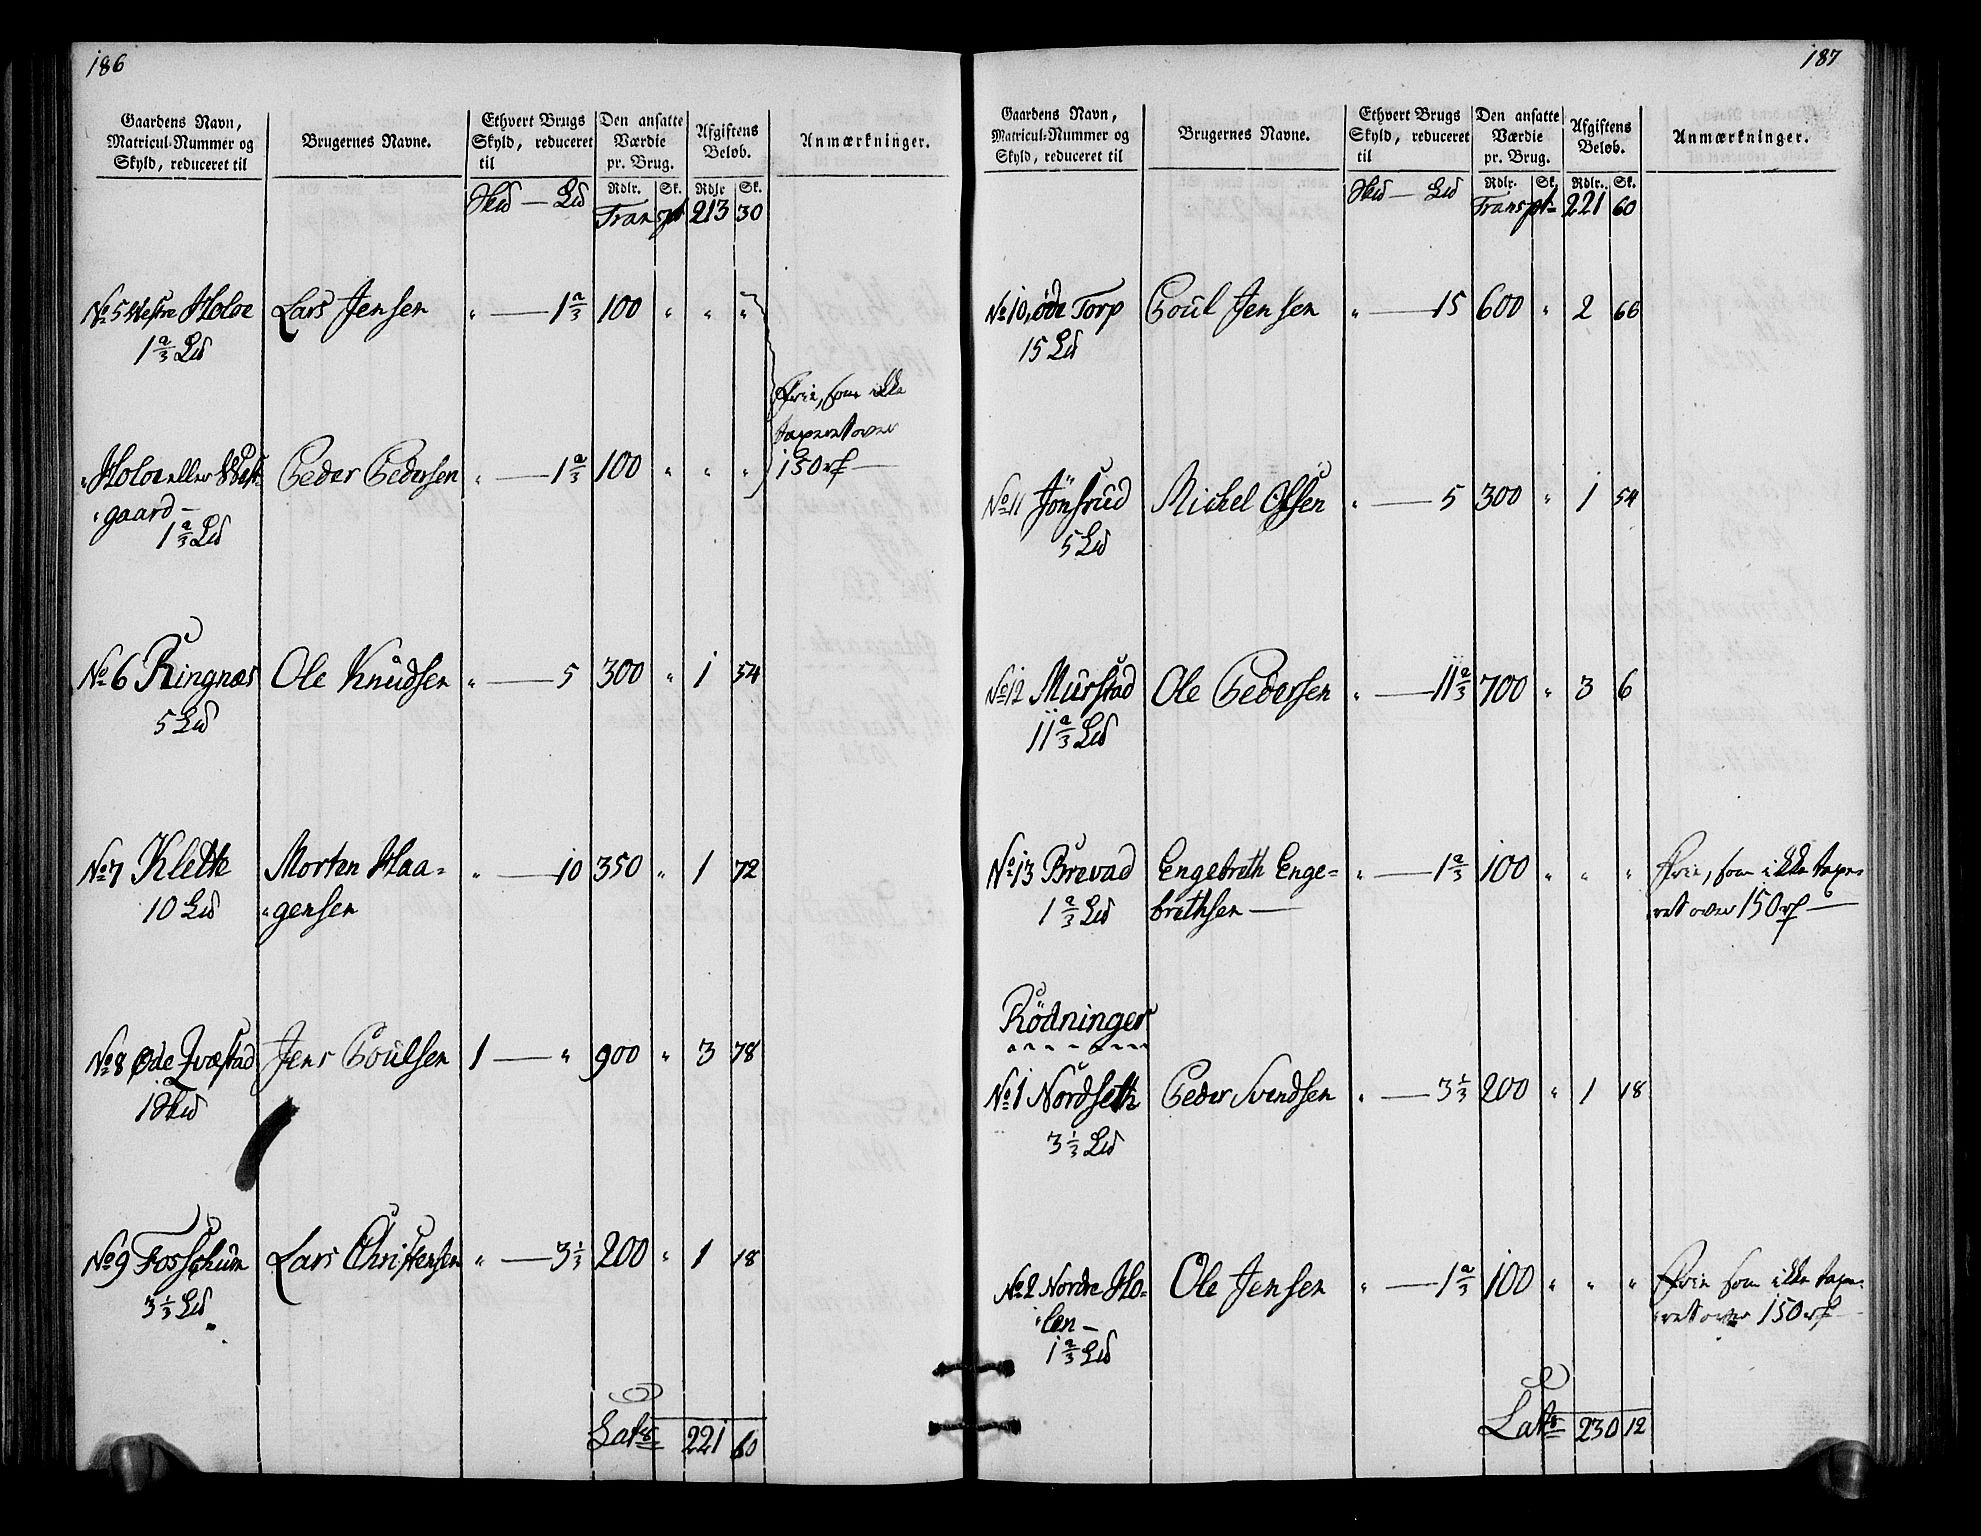 186
Gaardens Navn, Matricul-Nummer og Skyld, reduceret til | Brugernes Navne. | Ethvert Brugs Skyld, reduceret til | Den ansatte Værdie pr. Brug. | Afgiftens Beløb. | Anmærkninger.
Hud — Ld | Rdlr. | Sk. | Rdlr | Sk.
Transpt 213 30
No 5 Westre Holoe | Lars Jensen | " — 1 2/3 | 100 | " | " | "
1 2/3 Ld
Frie, som ikke
taxeret over
150 rd —
" Holoe eller West- | Peder Pedersen | " — 1 2/3 | 100 | " | " | "
" gaard —
1 2/3 Ld
No 6 Ringnæs | Ole Knudsen | " — 5 | 300 | " | 1 | 54
5 Ld
No 7 Klette | Morten Haa= | " — 10 | 350 | " | 1 | 72
10 Ld | "gensen
No 8 Øde Qvæstad | Jens Poulsen | 1 — " | 900 | " | 3 | 78
1 Hud
No 9 Fosshum | Lars Christensen | " — 3 1/3 | 200 | " | 1 | 18
3 1/3 Ld
Lats 221 60
187
Gaardens Navn, Matricul-Nummer og Skyld, reduceret til | Brugernes Navne. | Ethvert Brugs Skyld, reduceret til | Den ansatte Værdie pr. Brug. | Afgiftens Beløb. | Anmærkninger.
Hud — Ld | Rdlr. | Sk. | Rdlr. | Sk.
Transpt= 221 60
No 10, öde Torp | Poul Jensen | " — 15 | 600 | " | 2 | 66
15 Ld
No 11 Jönsrud | Michel Olsen | " — 5 | 300 | " | 1 | 54
5 Ld
No 12 Murstad | Ole Pedersen | " — 11 2/3 | 700 | " | 3 | 6
11 2/3 Ld
No 13 Brevad | Engebreth Enge= | " — 1 2/3 | 100 | " | " | " | Frie, som ikke taxe=
1 2/3 Ld | brethsen — | ret over 150 rd —
Rödninger
No 1 Nordseth | Peder Svendsen | " — 3 1/3 | 200 | " | 1 | 18
3 1/3 Ld
No 2 Nordre Ho= | Ole Jensen | " — 1 2/3 | 100 | " | " | " | Frie som ikke taxe=
" len — | ret over 150 rd —
1 2/3 Ld
Lats 230 12